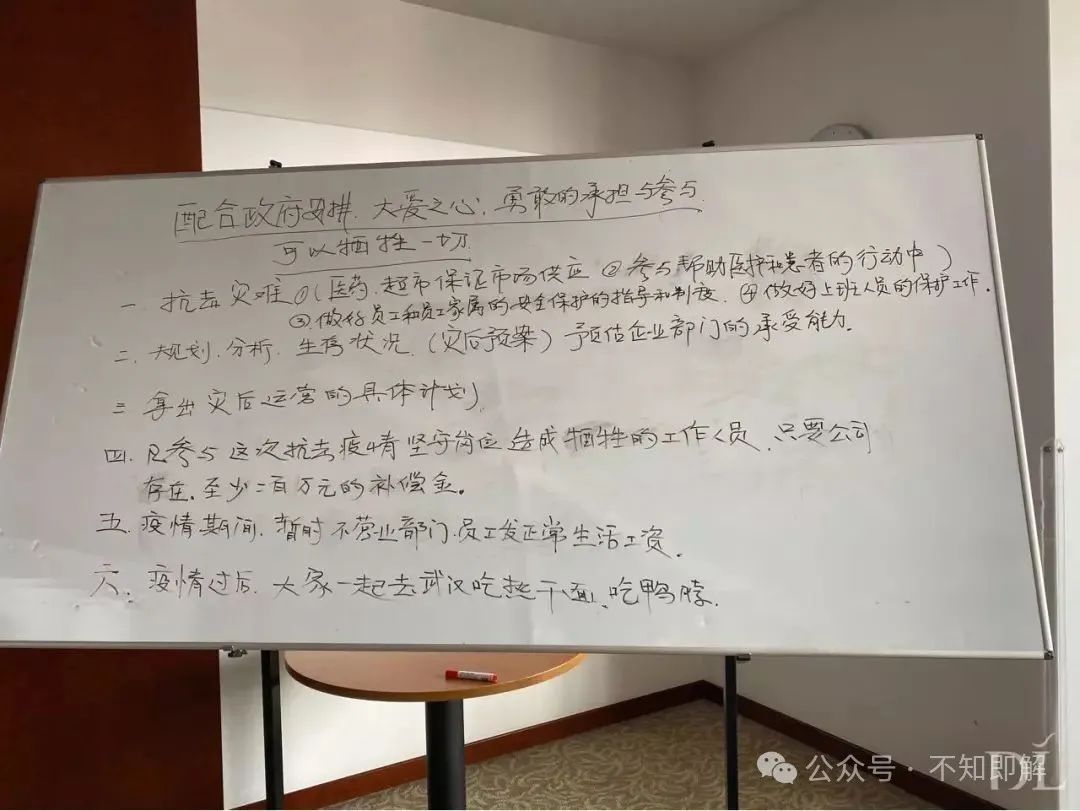 配合政府安排.大爱之心.勇敢的承担与参与.
可以牺牲一切
一.抗击灾难①(医药.超市保证市场供应 ②参与帮助医护和患者的行动中)
③做好员工和员工家属的安全保护的指导和制度.④做好上班人员的保护工作.
二.规划.分析.生存状况.(灾后预案)预估企业部门的承受能力.
三 拿出灾后运营的具体计划
四.凡参与这次抗击疫情坚守岗位造成牺牲的工作人员.只要公司
存在.至少二百万元的补偿金。
五.疫情期间.暂时不营业部门.员工发正常生活工资.
六.疫情过后.大家一起去武汉吃热干面、吃鸭脖.
公众号·不知即解
DL